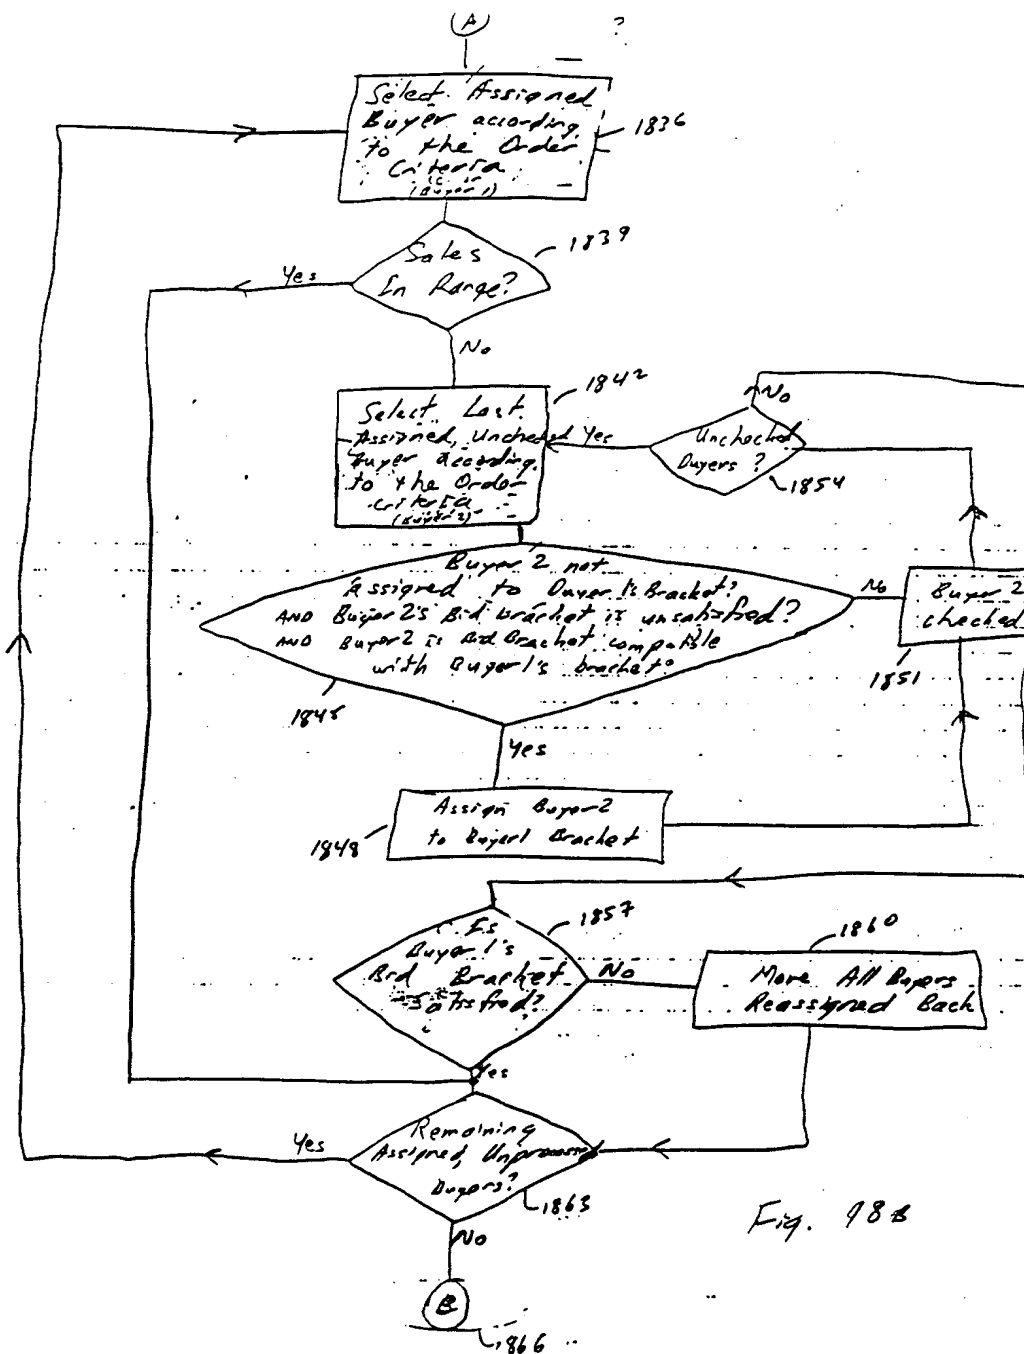 A
?
Select Assigned
Buyer according
to the Order
Criteria
(Buyer 1)
1836
Sales
In Range?
1839
Yes
No
Select Last
Assigned, Unchecked
Buyer according
to the Order
Criteria
(Buyer 2)
1842
Yes
Unchecked
Buyers ?
1854
No
Buyer 2 not
Assigned to Buyer 1's Bracket?
AND Buyer 2's Bid Bracket is unsatisfied?
AND Buyer 2's Bid Bracket compatible
with Buyer 1's bracket?
1845
No
Buyer 2
checked
1851
Yes
Assign Buyer 2
to Buyer 1 Bracket
1848
Is
Buyer 1's
Bid Bracket
Satisfied?
1857
No
1860
Move All Buyers
Reassigned Back
Yes
Remaining
Assigned, Unprocessed
Buyers?
Yes
1863
No
B
1866
Fig. 18B